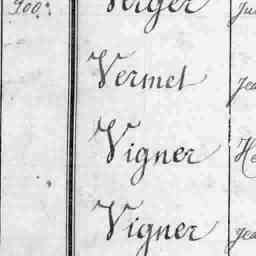 900. Verger Ju
Vermet Jea
Vigner He
Vigner Jea